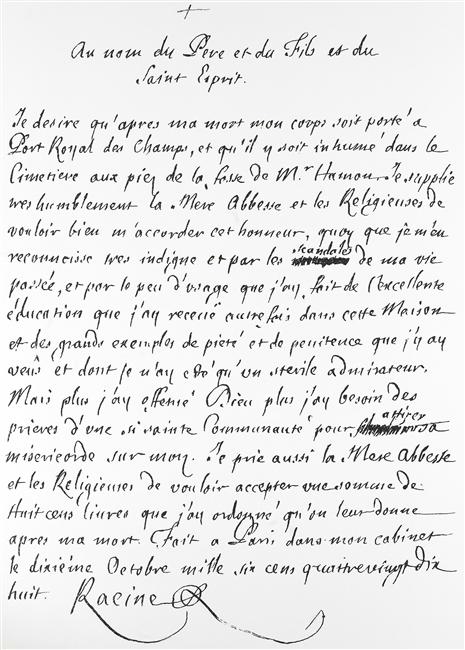 Au nom du Pere et du Fils et du
Saint Esprit.
Je desire qu'apres ma mort mon corps soit porté a
Port Royal des Champs, et qu'il y soit inhumé dans le
Cimetiere aux piez de la fosse de Mr Hamon. Je supplie
tres humblement la Mere Abbesse et les Religieuses de
vouloir bien m'accorder cet honneur, quoy que je m'en
reconnoisse tres indigne et par les scandales de ma vie
passée, et par le peu d'usage que j'ay fait de l'excellente
éducation que j'ay receüe autrefois dans cette Maison
et des grands exemples de pieté et de penitence que j'y ay
veûs et dont je n'ay esté qu'un sterile admirateur.
Mais plus j'ay offensé Dieu plus j'ay besoin des
prieres d'une si sainte Communauté pour attirer sa
misericorde sur moy. Je prie aussi la Mere Abbesse
et les Religieuses de vouloir accepter une somme de
Huit cens livres que j'ay ordonné qu'on leur donne
apres ma mort. Fait a Paris dans mon cabinet
le dixiéme Octobre mille six cens quattrevingt dix
huit. Racine